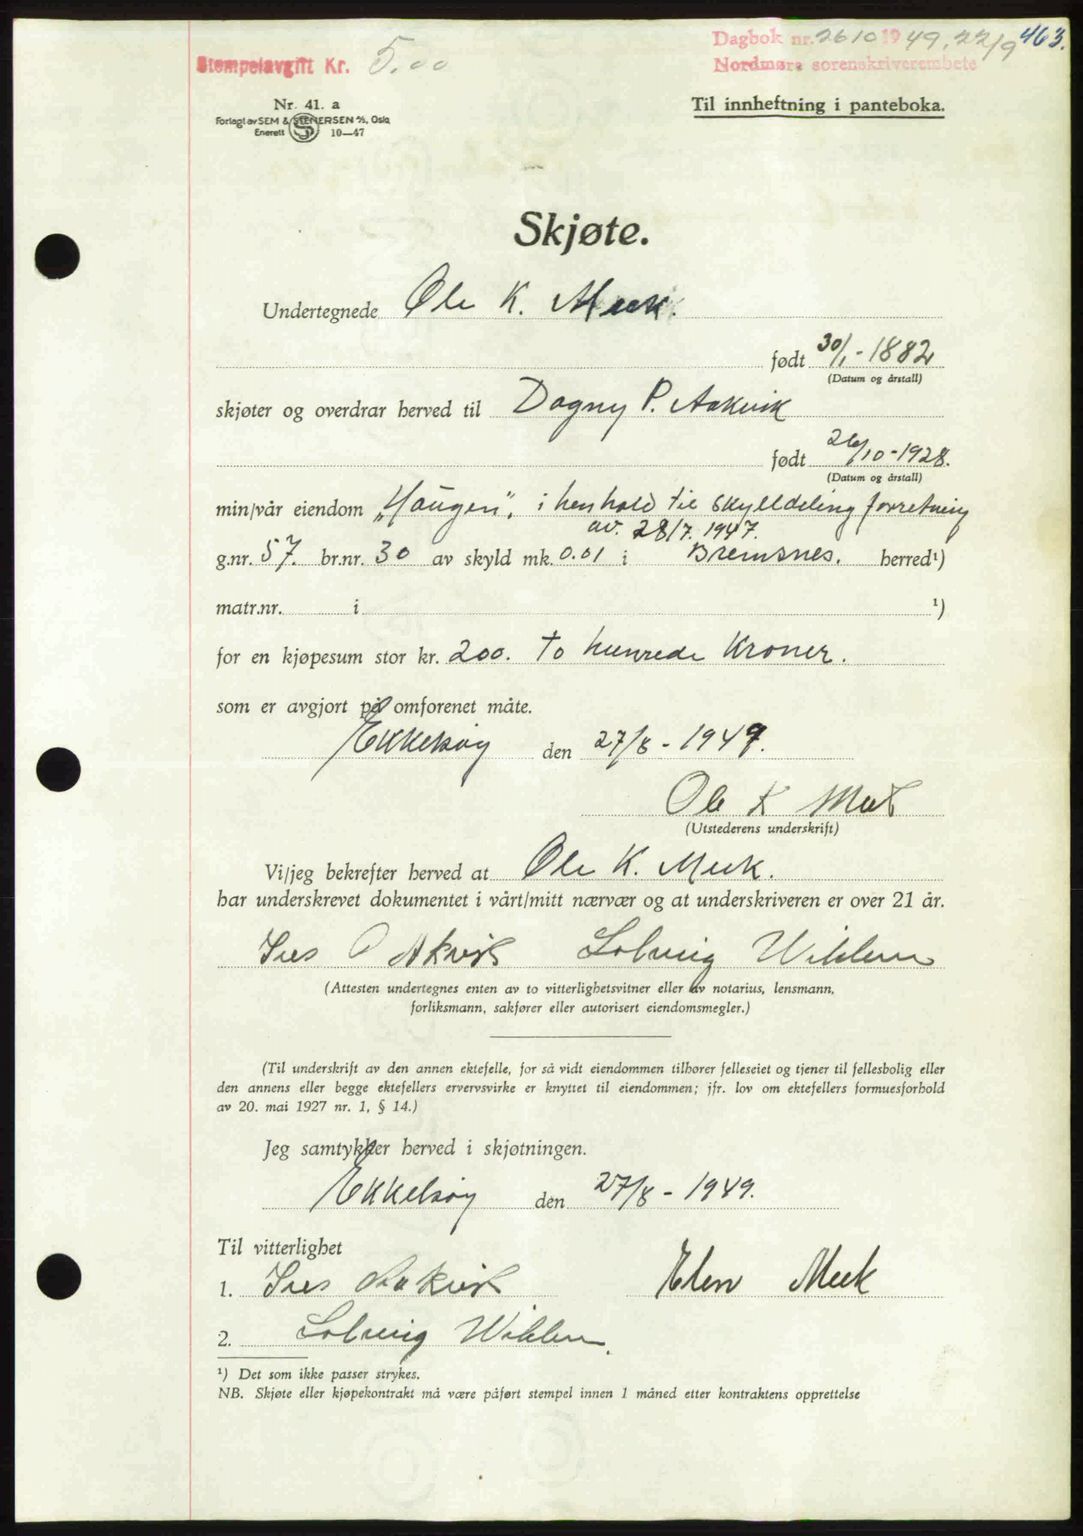 Stempelavgift Kr. 5.00
Dagbok nr. 2610 1949, 22/9 463.
Nordmøre sorenskriverembete
Nr. 41. a
Forlagt av SEM & STENERSEN A/S, Oslo
Enerett 10—47
Til innheftning i panteboka.
Skjøte.
Undertegnede Ole K. Meek.
født 30/1-1882
(Datum og årstall)
skjøter og overdrar herved til Dagny P. Aakvik
født 26/10-1928.
(Datum og årstall)
min/vår eiendom „Haugen", i henhold til skylldeling forretning
av. 28/7. 1947.
g.nr. 57. br.nr. 30 av skyld mk. 0.01 i Bremsnes. herred¹)
matr.nr. i ¹)
for en kjøpesum stor kr. 200. to hunrede Kroner.
som er avgjort på omforenet måte.
Ekkelsøy den 27/8 - 1949.
Ole K Meek
(Utstederens underskrift)
Vi/jeg bekrefter herved at Ole K. Meek.
har underskrevet dokumentet i vårt/mitt nærvær og at underskriveren er over 21 år.
P Akvik Solveig
(Attesten undertegnes enten av to vitterlighetsvitner eller av notarius, lensmann,
forliksmann, sakfører eller autorisert eiendomsmegler.)
(Til underskrift av den annen ektefelle, for så vidt eiendommen tilhører felleseiet og tjener til fellesbolig eller
den annens eller begge ektefellers ervervsvirke er knyttet til eiendommen; jfr. lov om ektefellers formuesforhold
av 20. mai 1927 nr. 1, § 14.)
Jeg samtykker herved i skjøtningen.
Ekkelsøy den 27/8 - 1949.
Til vitterlighet
1. Aakvik Elen Meek
2. Solveig
¹) Det som ikke passer strykes.
NB. Skjøte eller kjøpekontrakt må være påført stempel innen 1 måned etter kontraktens opprettelse